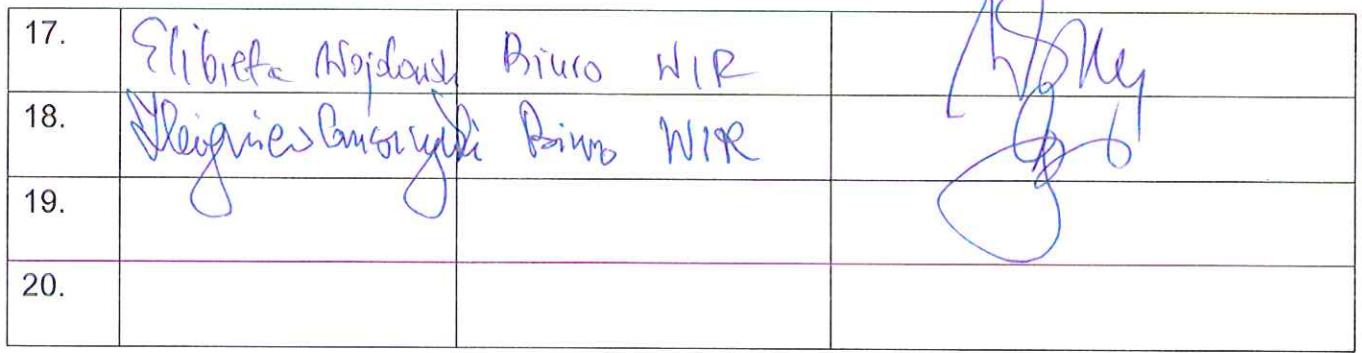 17. Elżbieta Wojdowsk Biuro WIR
18. Zbigniew Biuro WIR
19.
20.